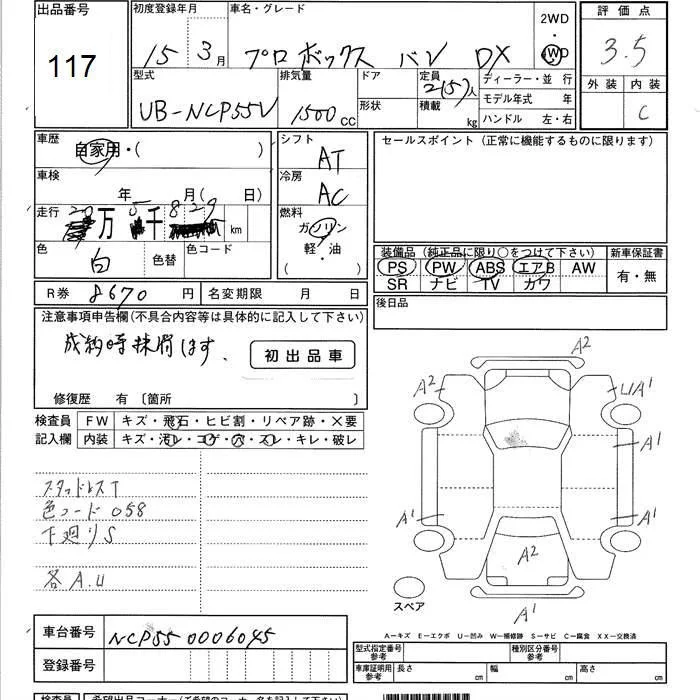 出品番号 初度登録年月 車名・グレード 2WD 評価点
117 15 3月 プロボックス バン DX 4WD 3.5
型式 排気量 ドア 定員 2(5)人 ディーラー・並行 外装 内装
UB-NCP55V 1500cc 形状 積載 kg モデル年式 年 C
ハンドル 左・右
車歴 シフト セールスポイント(正常に機能するものに限ります)
自家用・( ) AT
車検 冷房
年 月( 日) AC
走行 20万 千 829 km 燃料
ガソリン
色 色替 色コード 軽・油 装備品(純正品に限り○をつけて下さい) 新車保証書
白 ( ) PS PW ABS エアB AW 有・無
SR ナビ TV カワ
R券 8670円 名変期限 月 日 後日品
注意事項申告欄(不具合内容等は具体的に記入して下さい)
成約時抹消します. 初出品車 A2
A2 A1
修復歴 有 〔箇所 〕
検査員 FW キズ・飛石・ヒビ割・リペア跡・×要
記入欄 内装 キズ・汚レ・コゲ・穴・スレ・キレ・破レ A1
スタッドレスT
色コード 058 A1 A1
下廻りS
A2
各A.U
スペア A1
車台番号 NCP55 0006045 A-キズ E-エクボ U-凹み W-補修跡 S-サビ C-腐食 XX-交換済
型式指定番号 参考 種別区分番号 参考
登録番号 車庫証明用 参考 長さ 幅 高さ
検査員 希望出品コーナー(ご希望のコーナー名を記入して下さい)